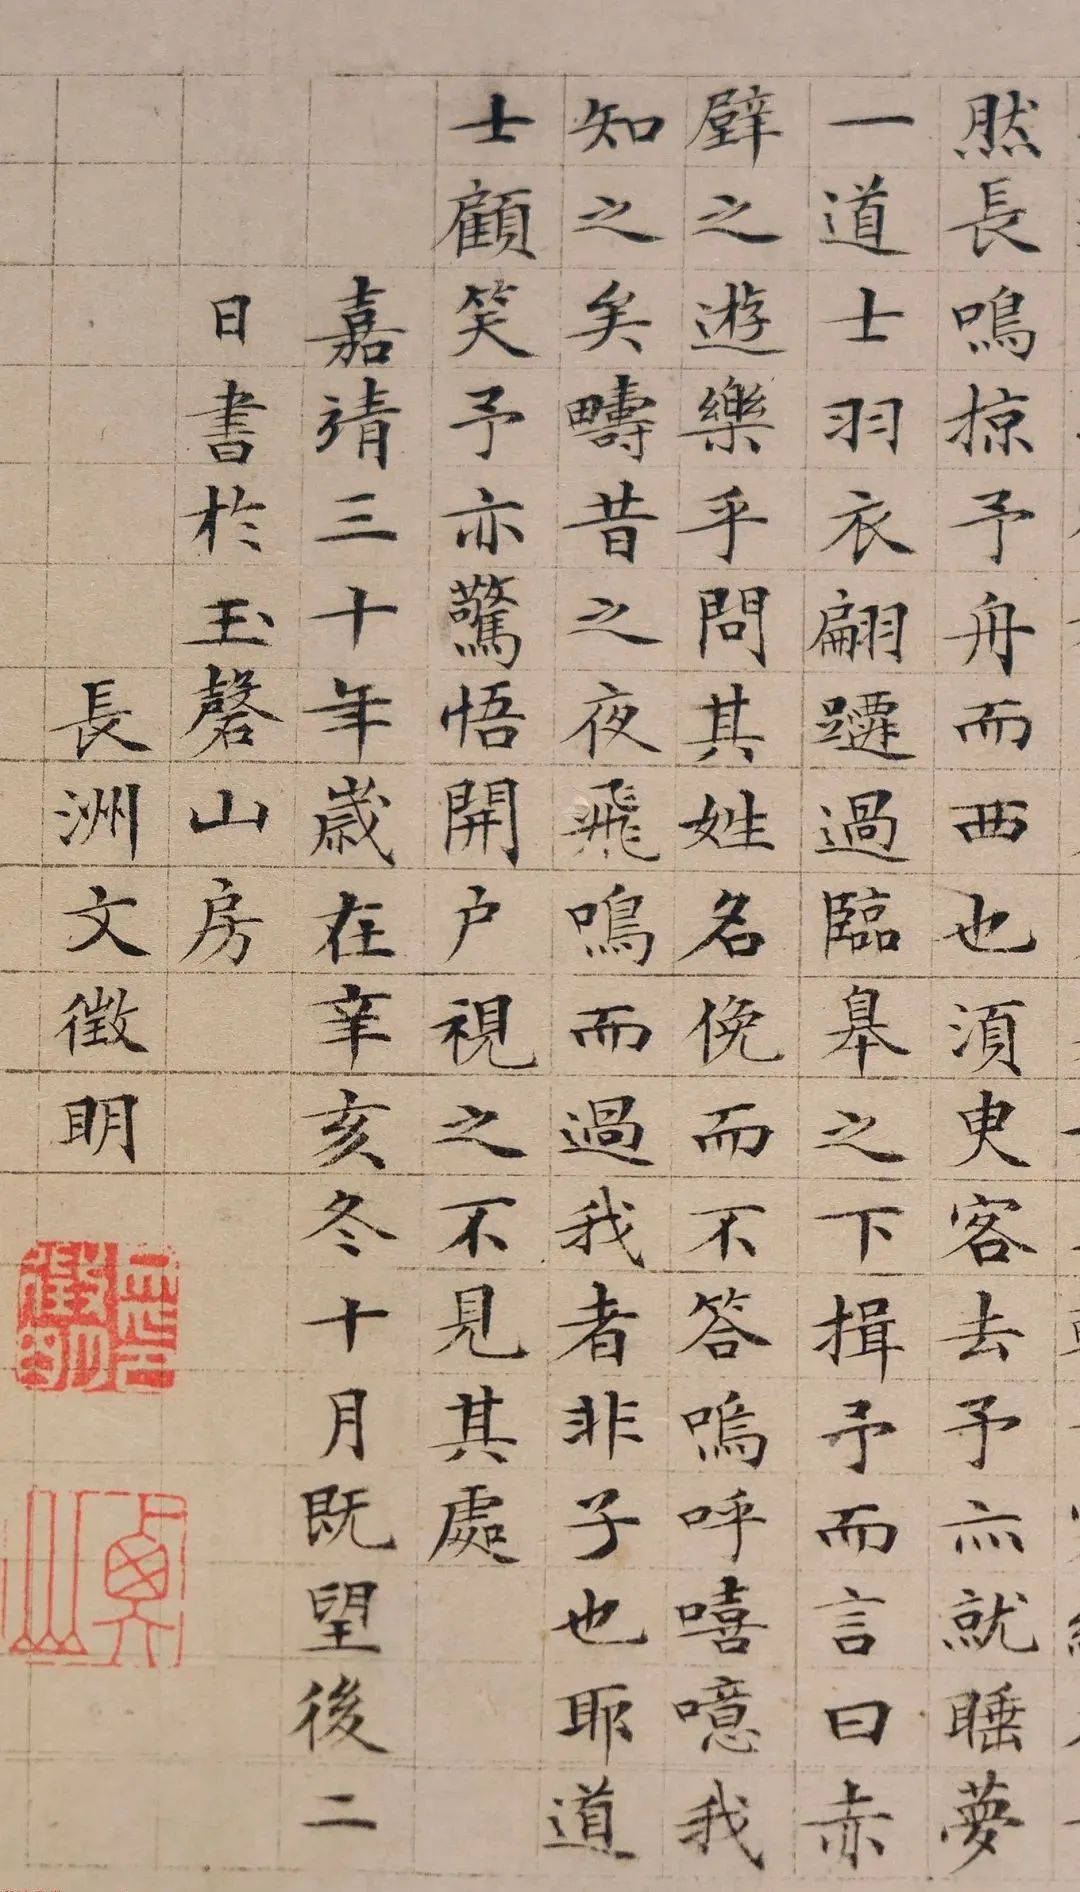 然長鳴掠予舟而西也須臾客去予亦就睡夢
一道士羽衣翩躚過臨皋之下揖予而言曰赤
壁之遊樂乎問其姓名俛而不答嗚呼嘻噫我
知之矣疇昔之夜飛鳴而過我者非子也耶道
士顧笑予亦驚悟開户視之不見其處
嘉靖三十年歲在辛亥冬十月既望後二
日書於玉磬山房
長洲文徵明